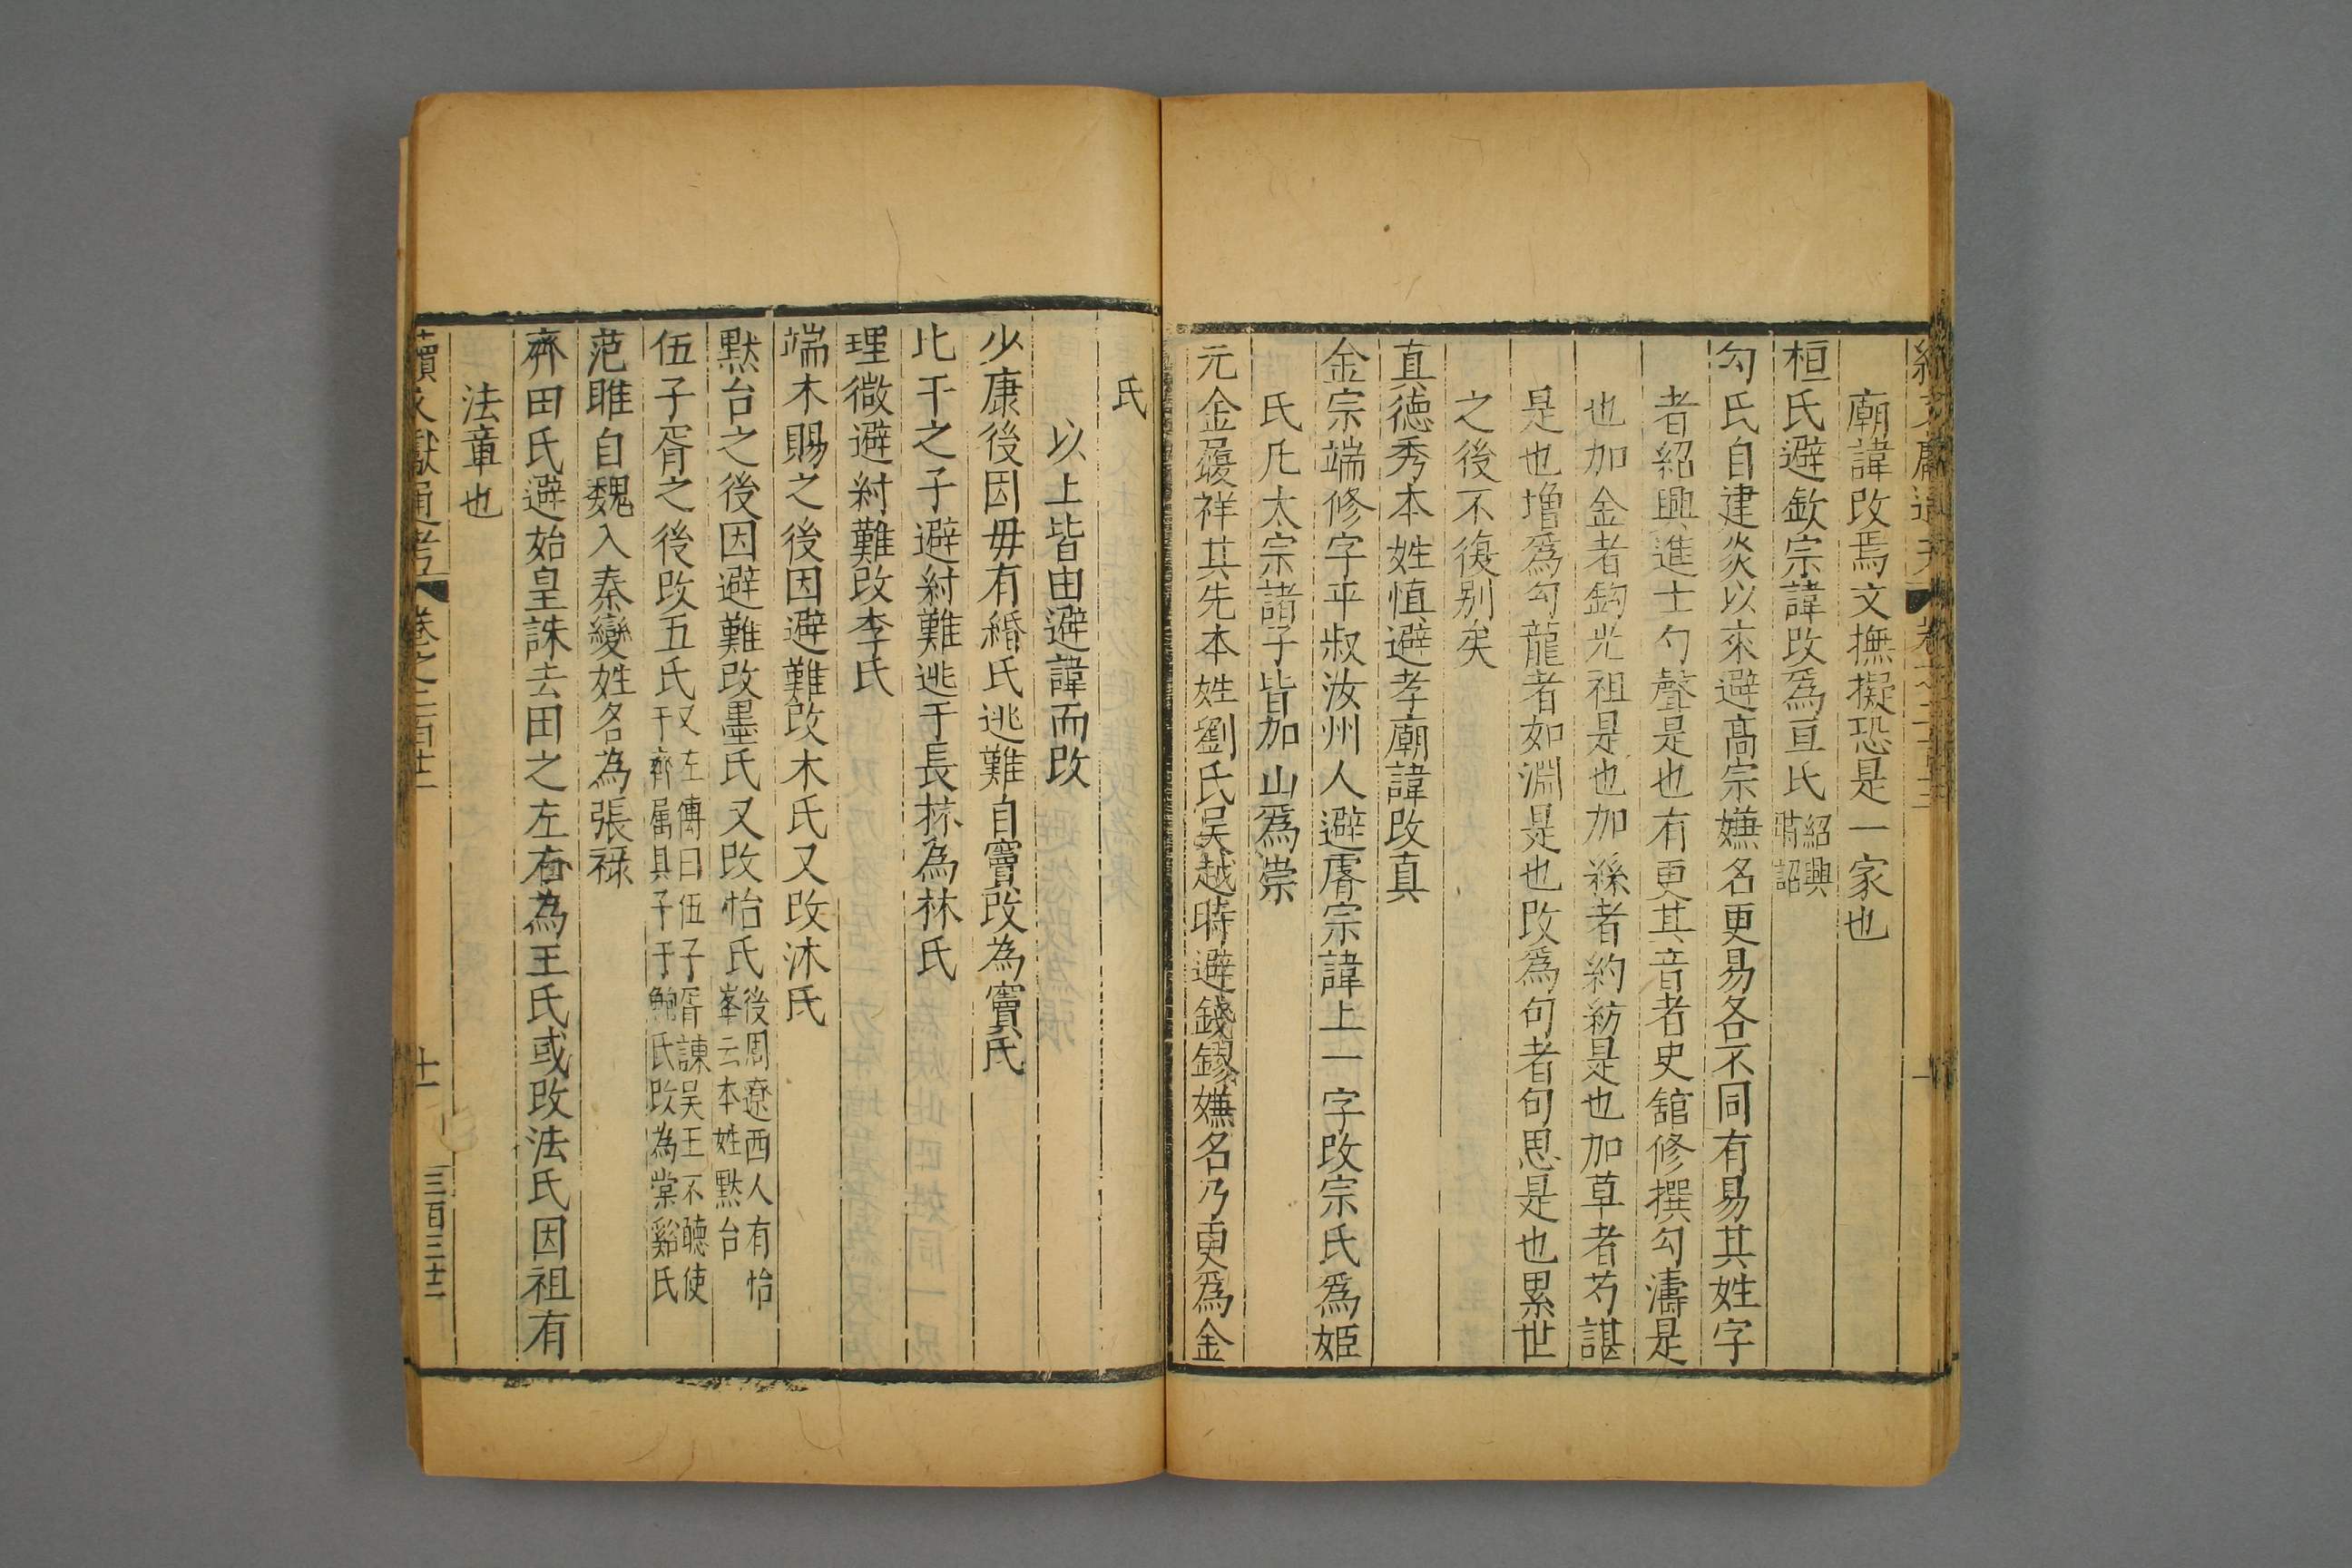 廟諱改焉文撫擬恐是一家也
桓氏避欽宗諱改爲亘氏紹興
詔
勾氏自建炎以來避髙宗嫌名更易各不同有易其姓字
者紹興進士勺聲是也有更其音者史舘修撰勾濤是
也加金者鈎光祖是也加絲者約紡是也加草者芶諶
是也增爲勾龍者如淵是也改爲句者句思是也累世
之後不復别矣
真德秀本姓慎避孝廟諱改真
金宗端修字平叔汝州人避睿宗諱上一字改宗氏爲姬
氏凡太宗諸子皆加山爲崇
元金履祥其先本姓劉氏吴越時避錢鏐嫌名乃更爲金
氏
以上皆由避諱而改
少康後因毋有緡氏逃難自竇改為竇氏
比干之子避紂難逃于長林為林氏
理徵避紂難改李氏
端木賜之後因避難改木氏又改沐氏
黙台之後因避難改墨氏又改怡氏後周遼西人有怡
峯云本姓黙台
伍子胥之後改五氏又左傳曰伍子胥諫吴王不聽使
于齊属其子于鮑氏改為棠谿氏
范雎自魏入秦變姓名為張禄
齊田氏避始皇誅去田之左右為王氏或改法氏因祖有
法章也
續文獻通考
卷之二百
十一
三百三十二